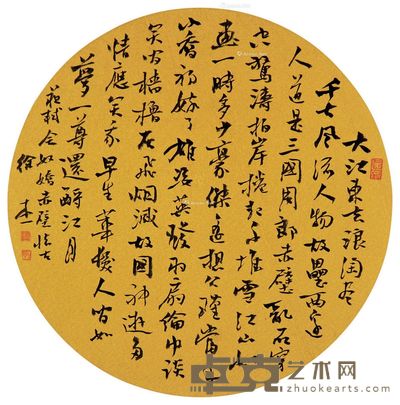 大江東去浪淘盡
千古風流人物故壘西邊
人道是三國周郎赤壁亂石穿
空驚濤拍岸捲起千堆雪江山如
畫一時多少豪傑遙想公瑾當年
小喬初嫁了雄姿英發羽扇綸巾談
笑間檣櫓灰飛煙滅故國神遊多
情應笑我早生華髮人間如
夢一尊還酹江月
蘇軾念奴嬌赤壁懷古
徐
卓克艺术网
zhuokearts.com